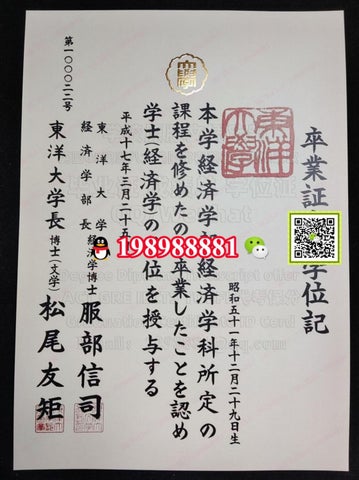 卒業証 学位記
昭和五十一年十二月二十九日生
本学経済学 経済学科所定の
課程を修めたの 卒業したことを認め
学士(経済学)の 位を授与する
平成十七年三月二十五
東洋大学
経済学部長 経済学博士 服部信司
東洋大学長 博士(文学) 松尾友矩
第一〇〇〇二二号
198988881